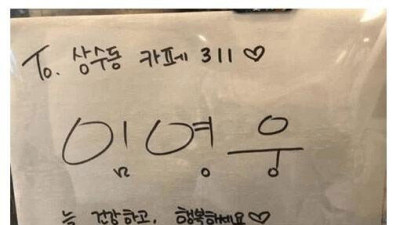 To. 상수동 카페 311♡
임영웅
늘 건강하고, 행복하세요♡